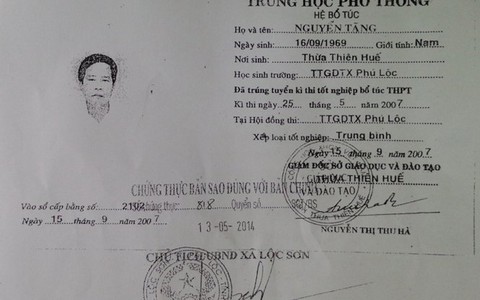 TRUNG HỌC PHỔ THÔNG
HỆ BỔ TÚC
Họ và tên: NGUYỄN TĂNG
Ngày sinh: 16/09/1969 Giới tính: Nam
Nơi sinh: Thừa Thiên Huế
Học sinh trường: TTGDTX Phú Lộc
Đã trúng tuyển kì thi tốt nghiệp bổ túc THPT
Kì thi ngày 25 tháng 5 năm 2007
Tại Hội đồng thi: TTGDTX Phú Lộc
Xếp loại tốt nghiệp: Trung bình
Ngày 15 tháng 9 năm 2007
GIÁM ĐỐC SỞ GIÁO DỤC VÀ ĐÀO TẠO
THỪA THIÊN HUẾ
CHỨNG THỰC BẢN SAO ĐÚNG VỚI BẢN CHÍNH
Vào sổ cấp bằng số: 2102 chứng thực: Quyển số
Ngày 15 tháng 9 năm 2007
13-05-2014
NGUYỄN THỊ THU HÀ
CHỦ TỊCH UBND XÃ LỘC SƠN